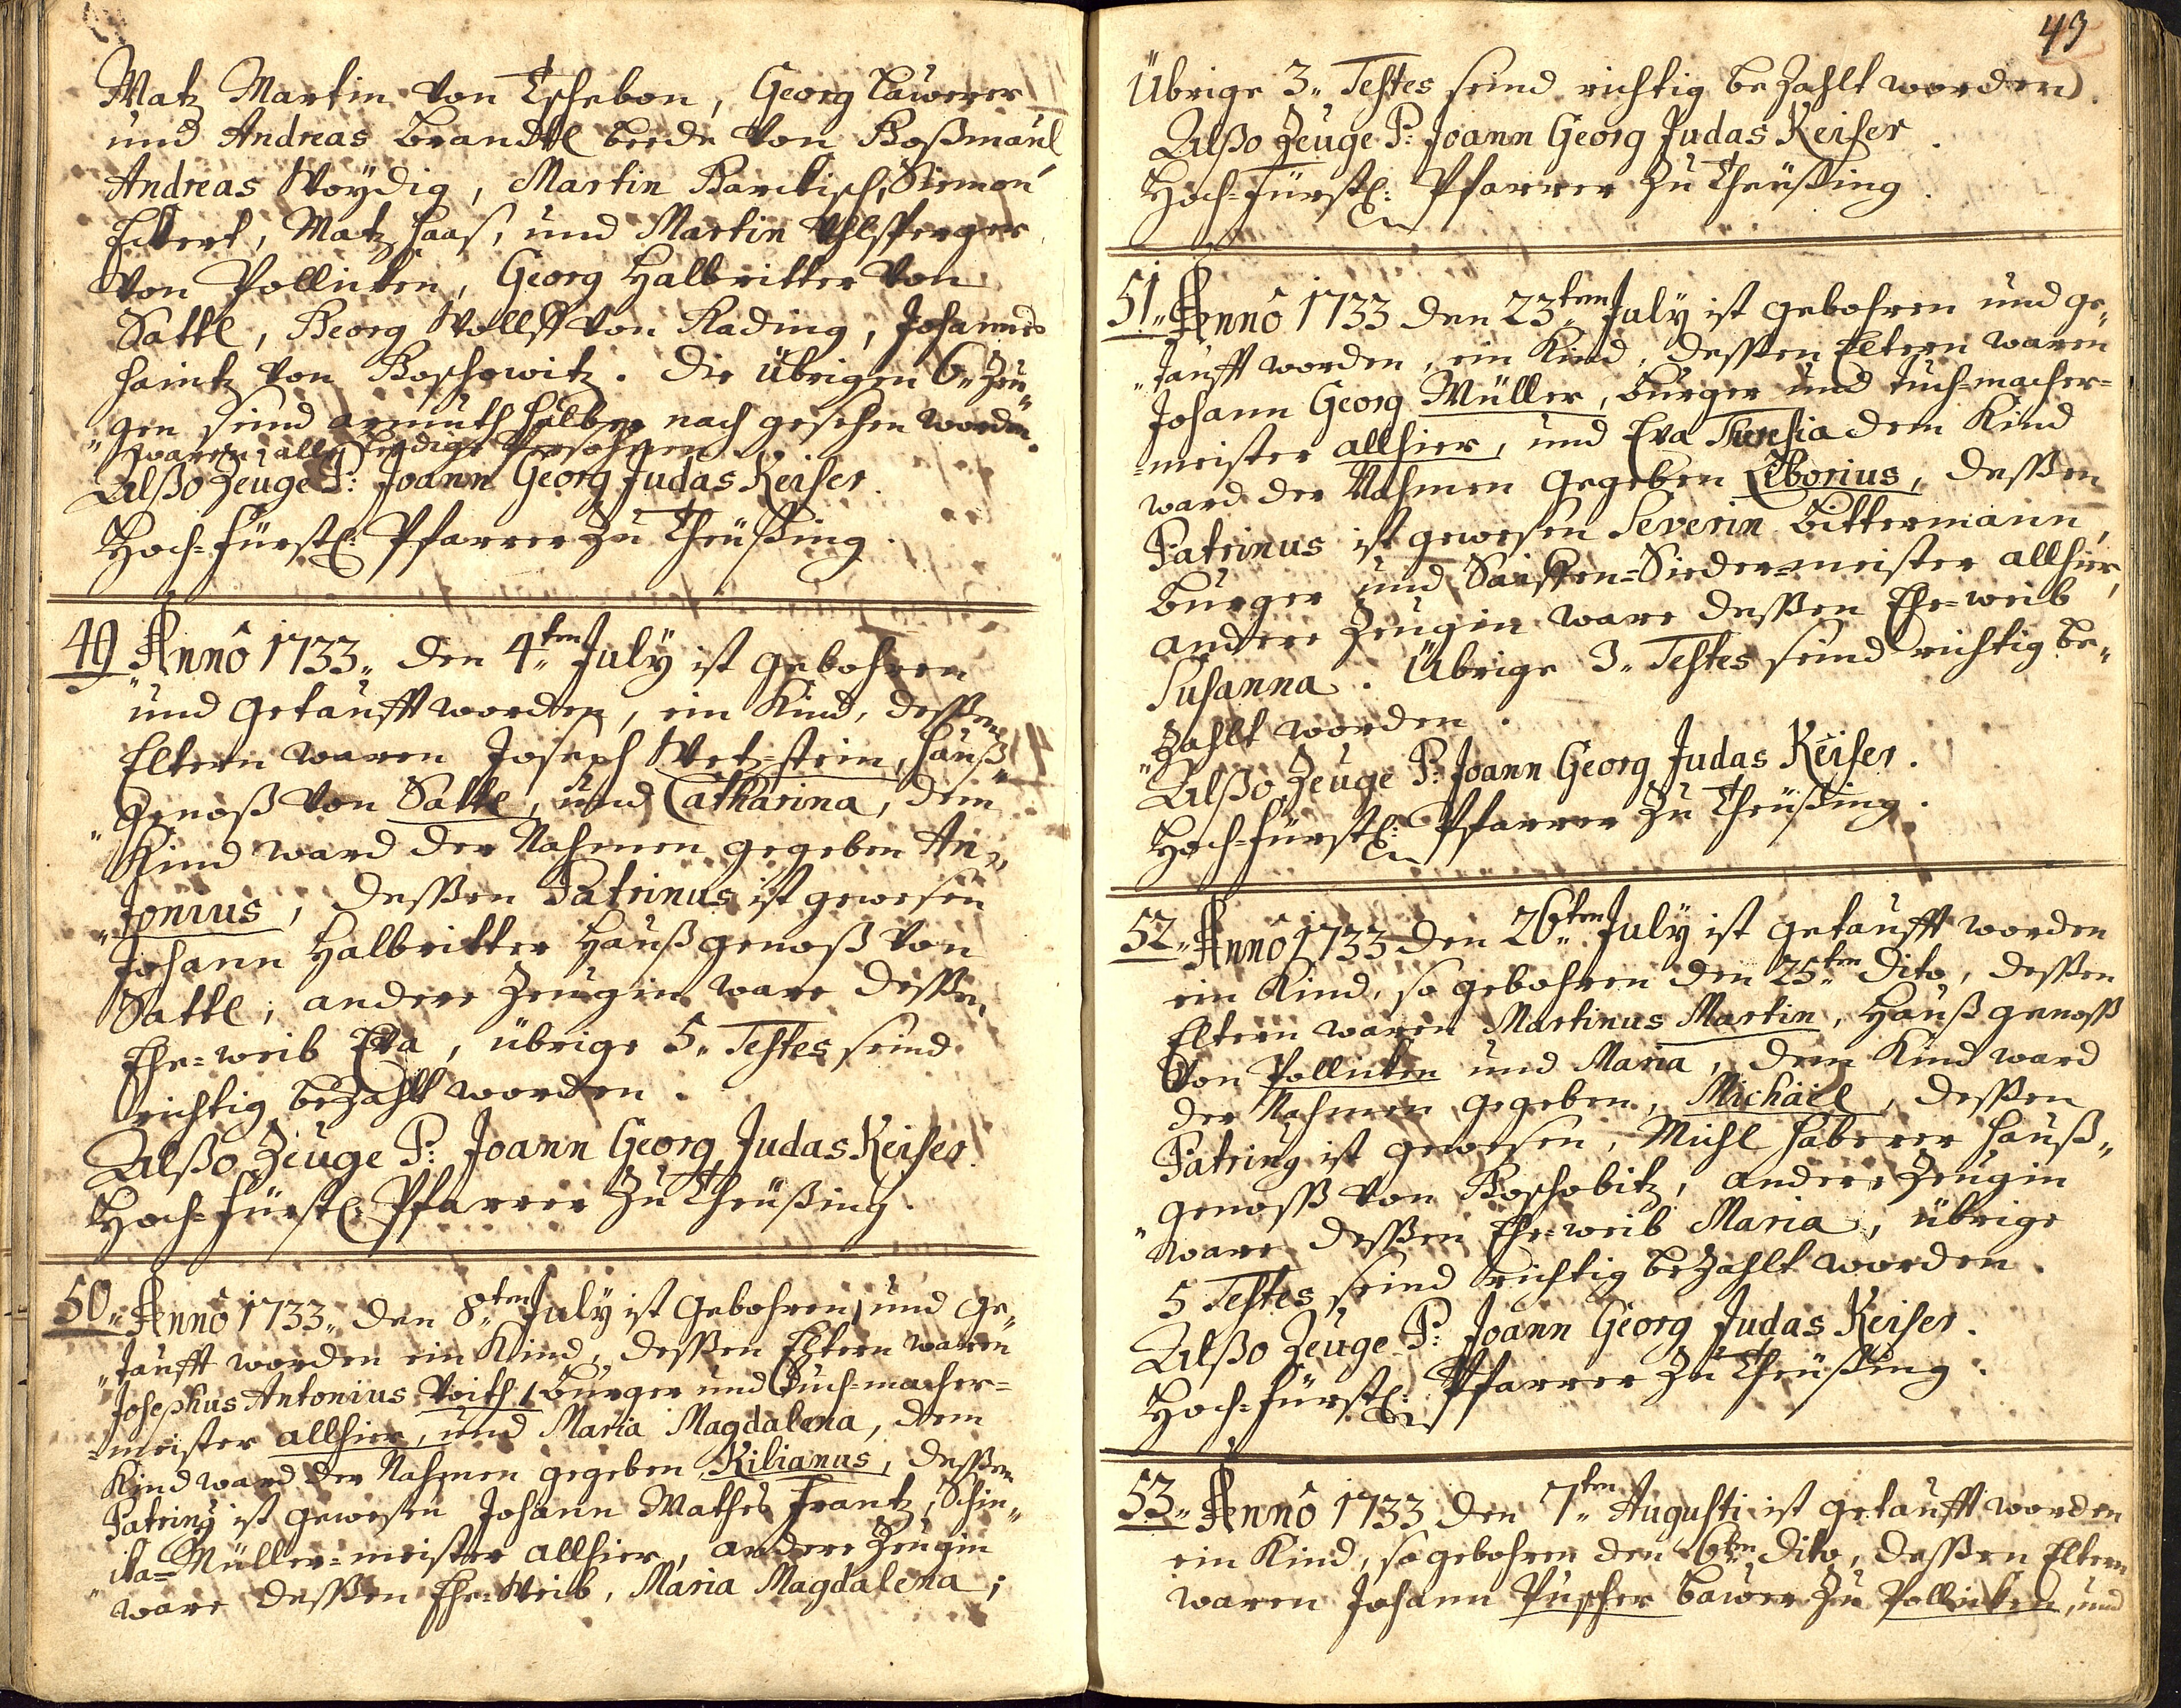 Matz Martin von Tschebon, Georg Lauerer
und Andreas Brandtl beede von Boßmaul
Andreas Woÿdig, Martin Barctisch, Siemon
Eckert, Matz Haas, und Martin
von Pollicken, Georg Halbritter von
Sattl, Georg Wollff von Rading, Johannes
Haintz von Boschowitz. die übrigen 6„ Zeu„
„gen seind armuth halber nach gesehen worden.
waren alle ledige Persohnen
Alßo Zeuge P: Joann Georg Judas Keiser.
Hoch=fürstl: Pfarrer zu Theüßing.
49 Annô 1733„ den 4„ten July ist gebohren
und getaufft worden, ein Kind, deßen
Eltern waren Joseph Wetz=stein, Hauß„
„genoß von Sattl, und Catharina, dem
Kind ward der Nahmen gegeben An„
„tonius, deßen Patrinus ist gewesen
Johann Halbritter Haußgenoß von
Sattl, andere Zeugin ware deßen
Ehe=weib Eva, übrige 5„ Testes seind
richtig bezahlt worden.
Alßo Zeuge P: Joann Georg Judas Keiser.
Hoch=fürstl: Pfarrer zu Theüßing.
50„ Annô 1733„ den 8„ten July ist gebohren, und ge„
„taufft worden ein Kind, deßen Eltern waren
Josephus Antonius Voith, Burger und Tuch=macher=
=meister allhier, und Maria Magdalena, dem
Kind ward der Nahmen gegeben Kilianus, deßen
Patrinus ist gewesen Johann Mathes Frantz, Schin„
„ka=Müller=meister allhier, andere Zeugin
ware deßen Ehe=Weib, Maria Magdalena;
43
Übrige 3„ Testes seind richtig bezahlt worden.
Alßo Zeuge P: Joann Georg Judas Keiser.
Hoch=fürstl: Pfarrer zu Theüßing.
51„ Annô 1733 den 23„ten July ist gebohren und ge„
„taufft worden, ein Kind, deßen Eltern waren
Johann Georg Müller, burger und tuch=macher=
=meister allhier, und Eva Theresia dem Kind
ward der Nahmen gegeben Liborius, deßen
Patrinus ist gewesen Severin Bittermann,
burger und Saiffen=Sieder=meister allhier,
andere Zeugin ware deßen Ehe=weib
Susanna. Übrige 3„ Testes seind richtig be„
„zahlt worden.
Alßo Zeuge P: Joann Georg Judas Keiser.
Hoch=fürstl: Pfarrer zu Theüßing.
52„ Annô 1733 den 26„ten July ist getaufft worden
ein Kind, so gebohren den 25„ten dito, deßen
Eltern waren Martinus Martin, Haußgenoß
von Pollicken und Maria, dem Kind ward
der Nahmen gegeben, Michäel, deßen
Patrinus ist gewesen, Michl Haberer Hauß„
„genoß von Boschobitz, andere Zeugin
ware deßen Ehe=weib Maria, übrige
5 Testes seind richtig bezahlt worden.
Alßo Zeuge P: Joann Georg Judas Keiser.
Hoch=fürstl: Pfarrer zu Theüßing.
53„ Annô 1733 den 7„ten Augusti ist getaufft worden
ein Kind, so gebohren den 6„ten dito, deßen Eltern
waren Johann Puscher bawer zu Pollicken, und